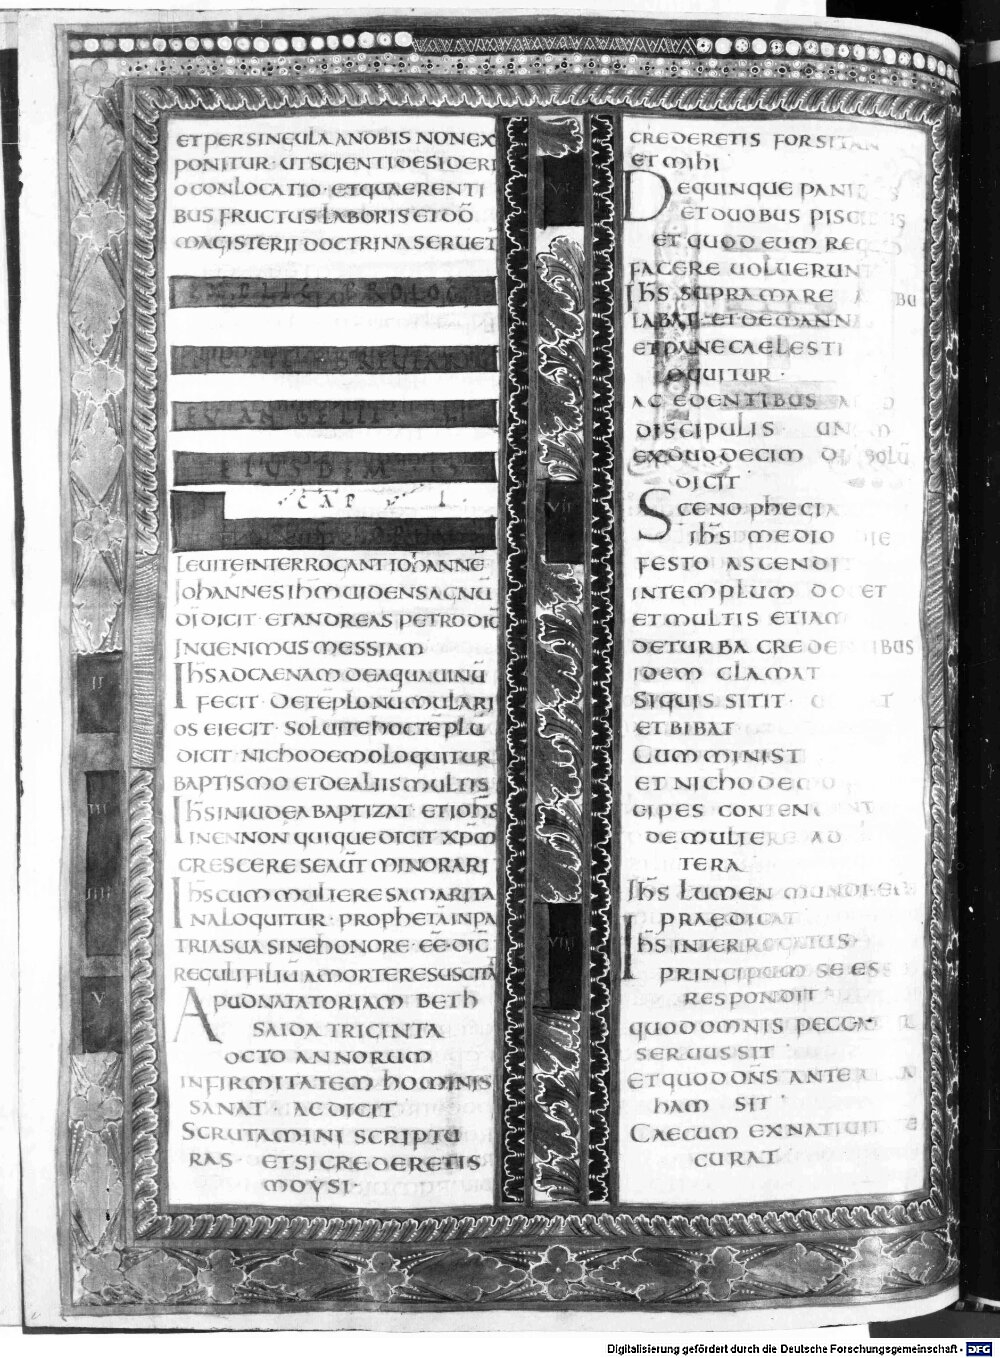 ET PER SINGULA A NOBIS NON EX
PONITUR· UT SCIENTI DESIDERI
O CONLOCATIO· ET QUAERENTI
BUS FRUCTUS LABORIS ET DŌ
MAGISTERII DOCTRINA SERUET
EXPLIC PROLOG
BREUIARI
EUANGELII
EIUSDEM
CAP L
LEUITE INTERROGANT IOHANNĒ
IOHANNES IHM UIDENS AGNŪ
DI DICIT· ET ANDREAS PETRO DIC
INUENIMUS MESSIAM
IHS AD CAENAM DE AQUA UINŪ
FECIT· DE TEPLO NUMULARI
OS EIECIT· SOLUITE HOC TEPLŪ
DICIT· NICHODEMO LOQUITUR
BAPTISMO ET DE ALIIS MULTIS
II
IHS IN IUDEA BAPTIZAT· ET IOHS
IN ENNON QUI QUE DICIT XPM
CRESCERE SE AUT MINORARI
III
IHS CUM MULIERE SAMARITA
NA LOQUITUR· PROPHETA IN PA
TRIA SUA SINE HONORE· EE· DIC
REGULI FILIŪ A MORTE RESUSCITA
IIII
APUD NATATORIAM BETH
SAIDA TRIGINTA
OCTO ANNORUM
INFIRMITATEM HOMINIS
SANAT· AC DICIT
SCRUTAMINI SCRIPTU
RAS· ET SI CREDERETIS
MOYSI·
V
CREDERETIS FORSITAN
ET MIHI
DE QUINQUE PANI
ET DUOBUS PISCIBUS
ET QUOD EUM REGEM
FACERE UOLUERUNT
IHS SUPRA MARE AMBU
LABAT· ET DE MANNA
ET PANE CAELESTI
LOQUITUR·
AC EDENTIBUS
DISCIPULIS UNUM
EX DUODECIM DI SOLŪ
DICIT
VI
SCENOPHEGIA
IHS MEDIO DIE
FESTO ASCENDI
IN TEMPLUM DOCET
ET MULTIS ETIAM
DE TURBA CREDENTIBUS
IDEM CLAMAT
SI QUIS SITIT·
ET BIBAT
CUM MINIST
ET NICHODEMO
CIPES CONTEN
DE MULIERE AD
TERA
VII
IHS LUMEN MUNDI·
PRAEDICAT
IHS INTERROGATUS·
PRINCIPEM SE ES
RESPONDIT·
QUOD OMNIS PECCA
SERUUS SIT·
ET QUOD DNS ANTE
HAM SIT·
CAECUM EX NATIUIT
CURAT
VIII
Digitalisierung gefördert durch die Deutsche Forschungsgemeinschaft - DFG